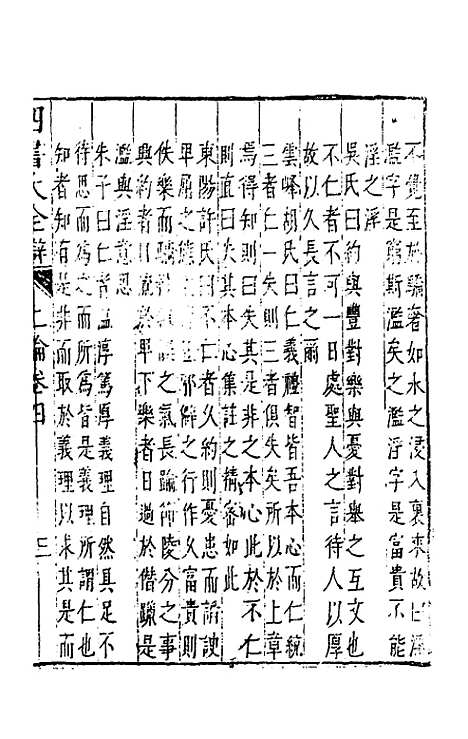 不覺至於驕奢如水之浸入裏來故曰淫
濫字是窮斯濫矣之濫淫字是富貴不能
淫之淫
吳氏曰約與豐對樂與憂對舉之互文也
不仁者不可一日處聖人之言待人以厚
故以久長言之爾
雲峰胡氏曰仁義禮智皆吾本心而仁統
三者仁一失則三者俱失矣所以於上章
焉得知則曰失其是非之本心此於不仁
則直曰失其本心集註之精審如此
東陽許氏曰不仁者久約則憂患而諂諛
卑屑之態生邪僻之行作久富貴則
佚樂而驕之氣長踰節陵分之事
與約者日流於卑下樂者日過於僭躐是
濫與淫意思
朱子曰仁者溫淳篤厚義理自然具足不
待思而為之而所為皆是義理所謂仁也
知者知有是非而取於義理以求其是而
四書大全辯 上論卷四 三